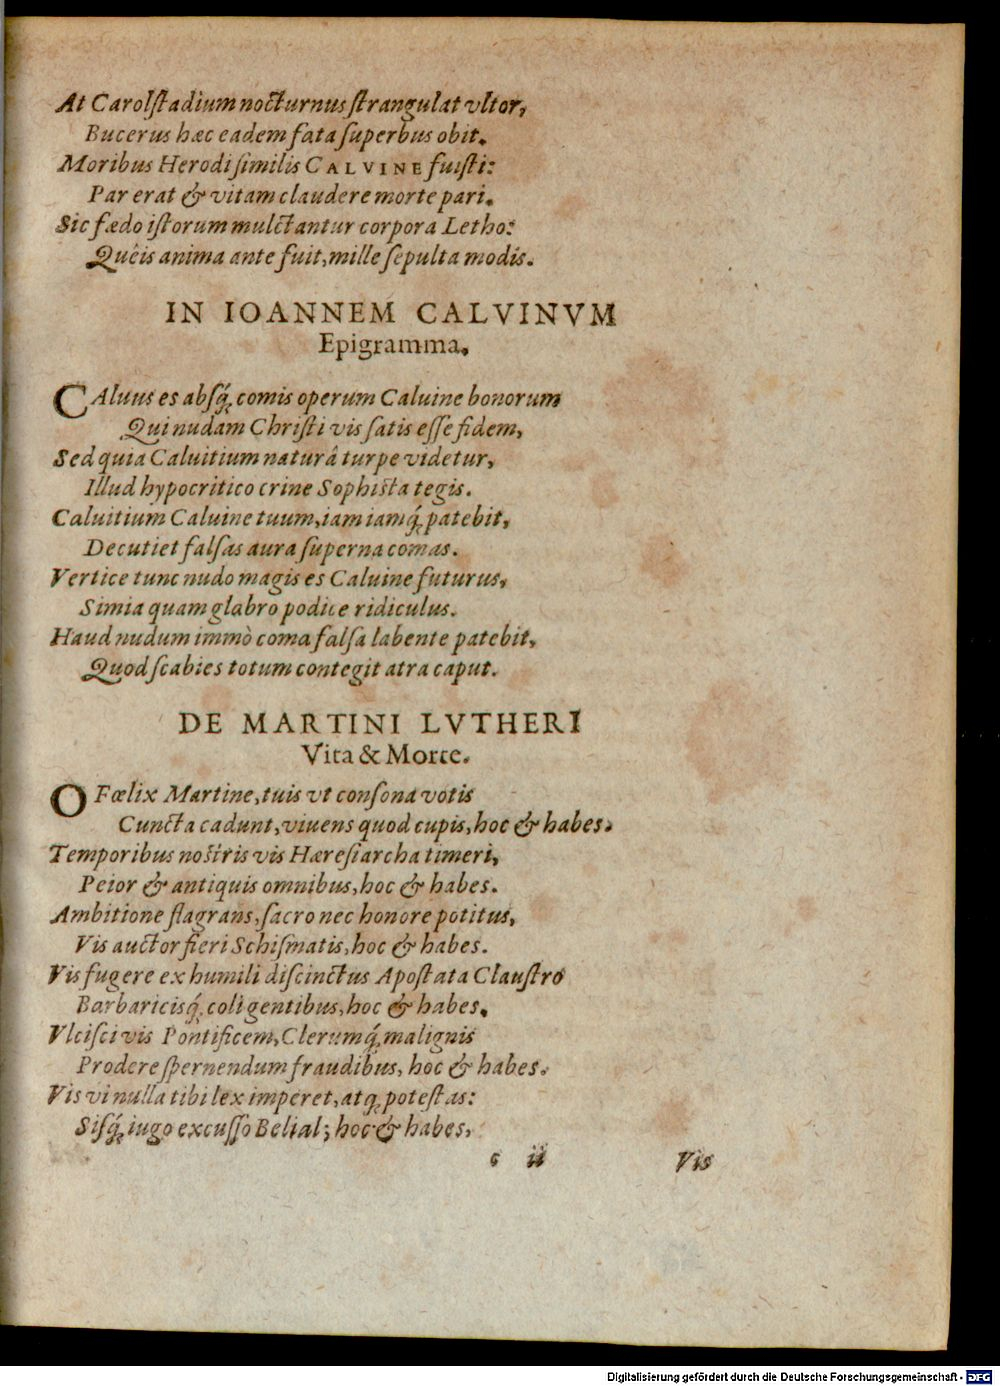 At Carolſtadium nocturnus ſtrangulat vltor,
Bucerus hæc eadem fata ſuperbus obit.
Moribus Herodi ſimilis CALVINE fuiſti:
Par erat & vitam claudere morte pari.
Sic fædo iſtorum mulctantur corpora Letho:
Quêis anima ante fuit, mille ſepulta modis.
IN IOANNEM CALVINVM
Epigramma.
CAluus es abſq́; comis operum Caluine bonorum
Qui nudam Chriſti vis ſatis eſſe fidem,
Sed quia Caluitium naturâ turpe videtur,
Illud hypocritico crine Sophiſta tegis.
Caluitium Caluine tuum, iam iamq́; patebit,
Decutiet falſas aura ſuperna comas.
Vertice tunc nudo magis es Caluine futurus,
Simia quam glabro podice ridiculus.
Haud nudum immò coma falſa labente patebit,
Quod ſcabies totum contegit atra caput.
DE MARTINI LVTHERI
Vita & Morte.
O Fœlix Martine, tuis vt conſona votis
Cuncta cadunt, viuens quod cupis, hoc & habes.
Temporibus noſtris vis Hæreſiarcha timeri,
Peior & antiquis omnibus, hoc & habes.
Ambitione flagrans, ſacro nec honore potitus,
Vis auctor fieri Schiſmatis, hoc & habes.
Vis fugere ex humili diſcinctus Apoſtata Clauſtro
Barbaricisq́; coli gentibus, hoc & habes.
Vlciſci vis Pontificem, Clerumq́; malignis
Prodere ſpernendum fraudibus, hoc & habes.
Vis vi nulla tibi lex imperet, atq; poteſtas:
Siſq́; iugo excuſſo Belial; hoc & habes,
c ii Vis
Digitalisierung gefördert durch die Deutsche Forschungsgemeinschaft - DFG